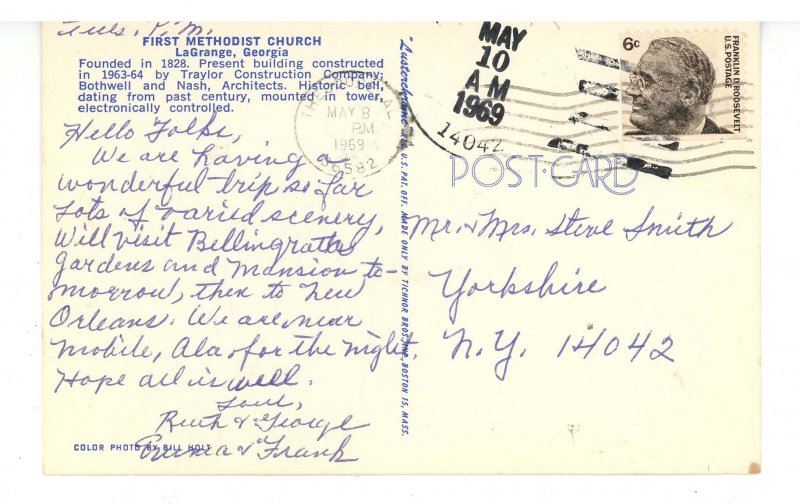 Tues. P.M.
FIRST METHODIST CHURCH
LaGrange, Georgia
Founded in 1828. Present building constructed
in 1963-64 by Traylor Construction Company;
Bothwell and Nash, Architects. Historic bell,
dating from past century, mounted in tower,
electronically controlled.
Hello Folks,
We are having a
wonderful trip so far
Lots of varied scenery,
Will visit Bellingraths
Gardens and Mansion to-
morrow, then to New
Orleans. We are near
Mobile, Ala. for the night.
Hope all is well.
Love,
Ruth & George
& Frank
COLOR PHOTO BY BILL HOLT
"Lusterchrome" REG. U.S. PAT. OFF. MADE ONLY BY TICHNOR BROS., INC., BOSTON 15, MASS.
MAY 8
PM
1969
MAY
10
AM
1969
14042
6c
FRANKLIN D. ROOSEVELT
U.S. POSTAGE
POST CARD
Mr. & Mrs. Steve Smith
Yorkshire
N.Y. 14042